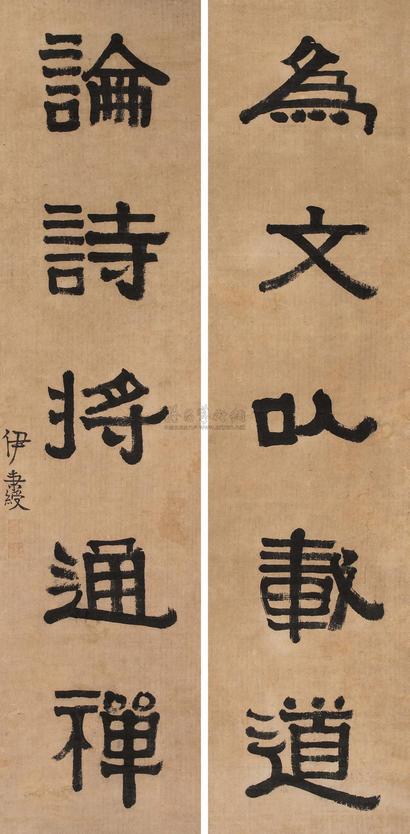 為文以載道
論詩將通禪
伊秉綬